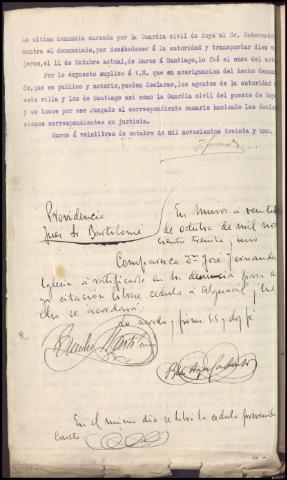 La última denuncia cursada por la Guardia civil de Noya al Sr. Gobernador
contra el denunciado, por desobedecer á la autoridad y transportar diez via
jeros, el 11 de Octubre actual, de Muros á Santiago, lo fué el once del actu
Por lo expuesto suplico á S.S. que en averiguación del hecho denunc
do, que es publico y notorio, pueden declarar, los agentes de la autoridad d
esta villa y los de Santiago así como la Guardia civil del puesto de Noya
y se incoe por ese Juzgado el correspondiente sumario haciendo las decla
ciones correspondientes en justicia.
Muros á veintitres de octubre de mil novecientos treinta y uno.
Providencia
Juez Sr. Bartolomé
En Muros á veintitres
de octubre de mil nov
ciento treinta y uno
Comparezca Dn José Fernandez
Iglesias á ratificarse en su denuncia para
citacion librese cedula á Alguacil, y he
cho se acordará.
Lo acordó y firma SS y doy fé
En el mismo dia se libró la cedula prevenida